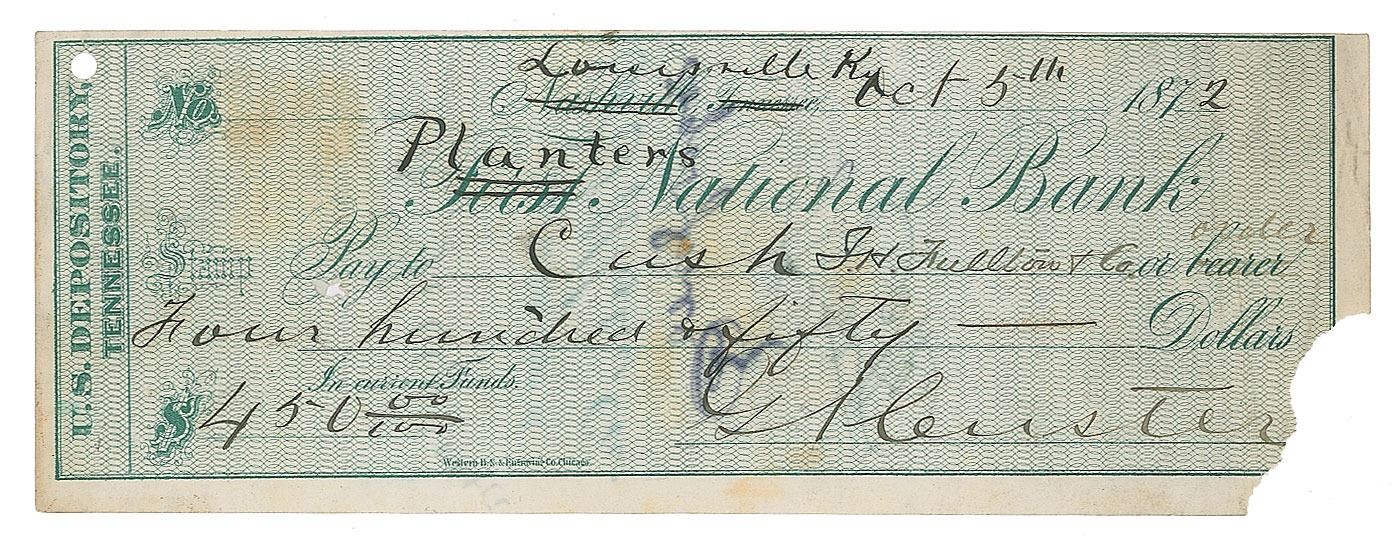 U.S. DEPOSITORY,
TENNESSEE.
No.
Louisville Ky Oct 5th 1872
Nashville Tennessee,
Planters
First National Bank
order
Stamp Pay to Cash F.H. Fullton & Co. or bearer
Four hundred & fifty — Dollars
In current Funds.
$ 450 00/100 G A Custer
Western B. N. & Engraving Co. Chicago.